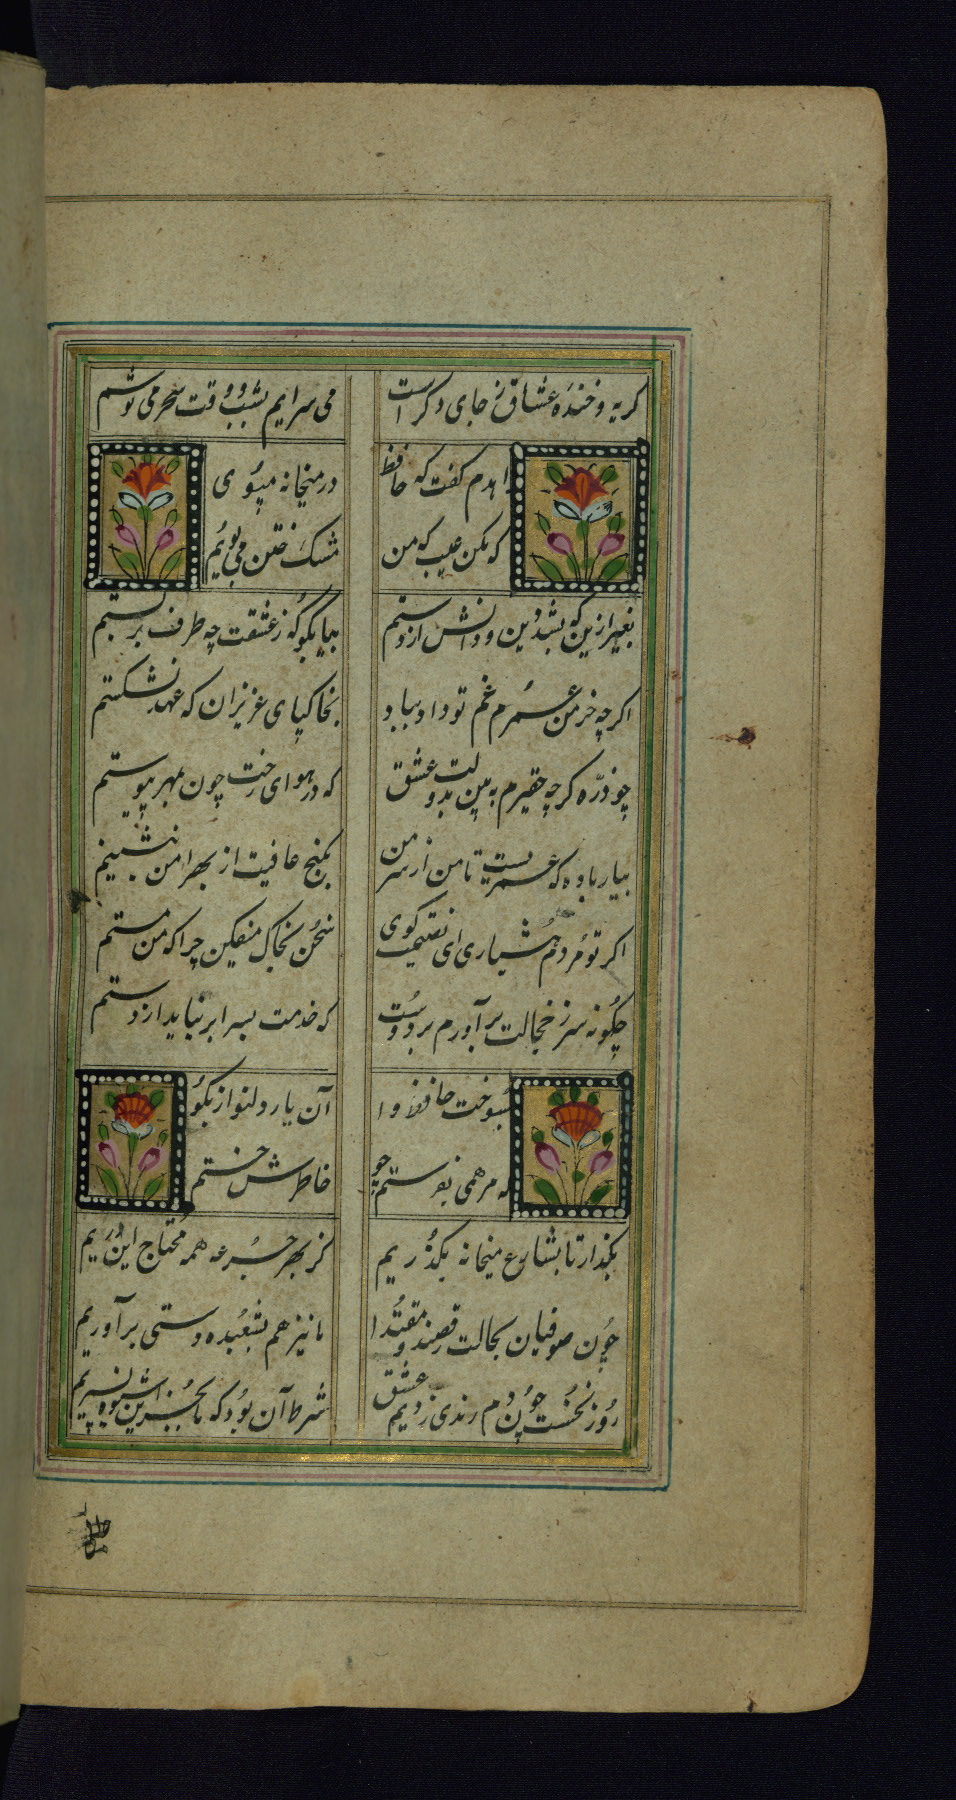 کریه و خنده عشاق ز جای دکر است
می سرایم بشب و وقت سحر می نوشم
زاهدم کفت که حافظ
در میخانه مپوی
که مکن عیب که من
مشک ختن می بویم
بغیر ازین که بشد دین و دانش از دستم
بیا بکو که ز عشقت چه طرف بربستم
اکر چه خرمن عمرم غم تو داد بباد
بخاکپای عزیزان که عهد نشکستم
چو ذرّه کرچه حقیرم به بین بدولت عشق
که در هوای رخت چون بمهر پیوستم
بیار باده که عمریست تا من از سر من
بکنج عافیت از بهر امن ننشینم
اکر تو مردم هشیاری ای نصیحت کوی
سخن بخاک میفکن چرا که من مستم
چکونه سر ز خجالت برآورم بر دوست
که خدمت بسرا بر نیاید از دستم
بسوخت حافظ و ا
آن یار دلنواز بکو
که مرهمی بفرستم چو
خاطرش خستم
بکذار تا بشارع میخانه بکذریم
کز بهر جرعه همه محتاج این دریم
چون صوفیان بحالت رقصند و مقتدا
ما نیز هم بشعبده دستی برآوریم
روز نخست چون دم رندی زدیم و عشق
شرط آن بود که ما بجز این شیوه نسپریم